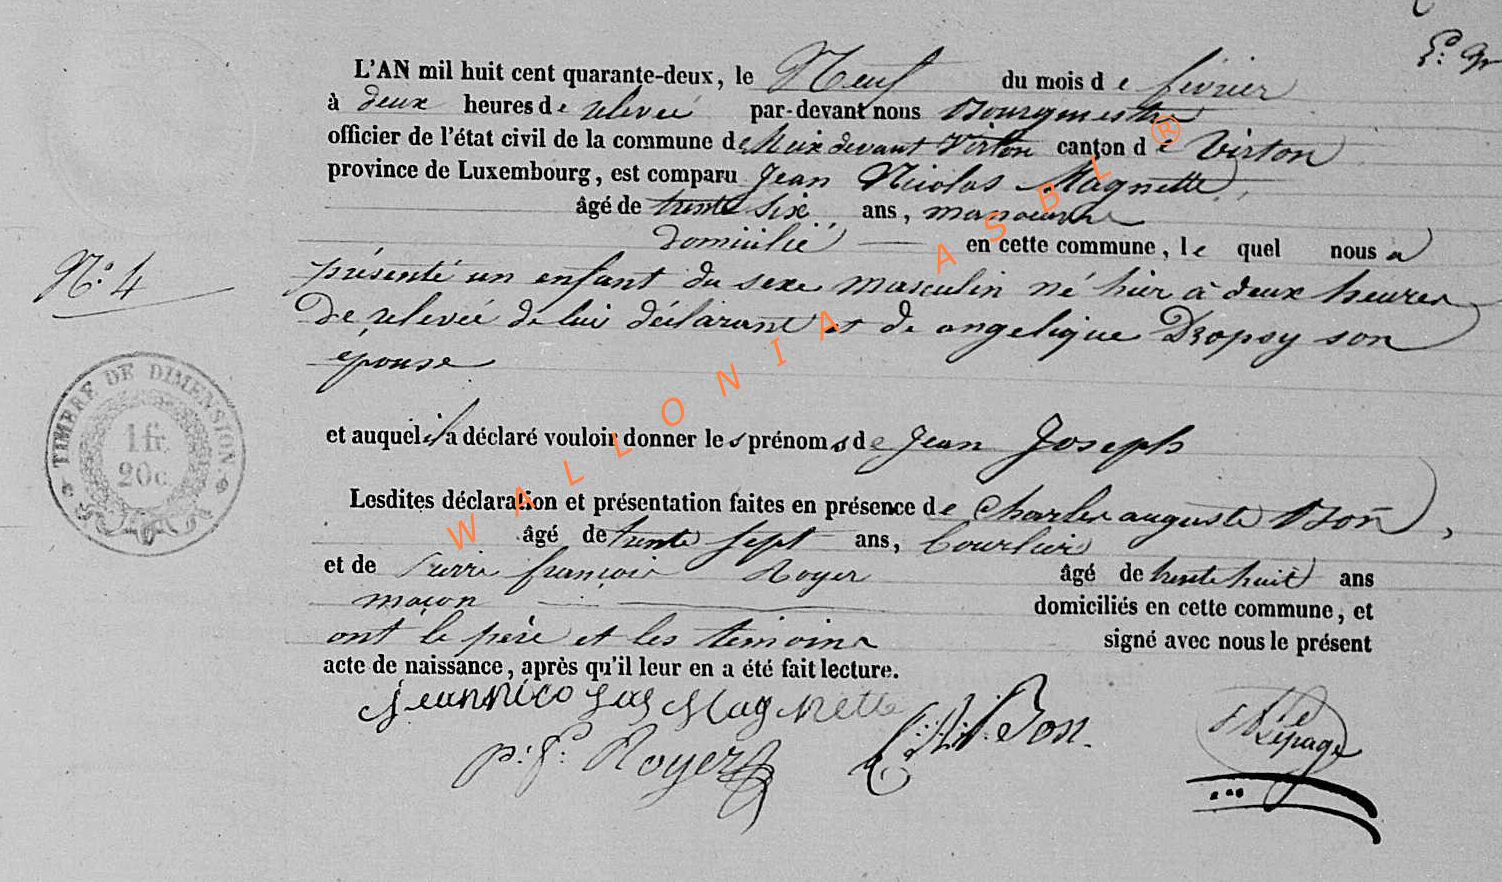 L'AN mil huit cent quarante-deux, le Neuf du mois de février
à deux heures de relevée par-devant nous Bourgmestre
officier de l'état civil de la commune de Meix devant Virton canton de Virton
province de Luxembourg, est comparu Jean Nicolas Magnette,
âgé de trente six ans, manoeuvre
domicilié en cette commune, lequel nous a
N°. 4
présenté un enfant du sexe masculin né hier à deux heures
de relevée de lui déclarant et de angelique Dropsy son
épouse
et auquel il a déclaré vouloir donner les prénoms de Jean Joseph
Lesdites déclaration et présentation faites en présence de Charles auguste Bon,
âgé de trente sept ans,
et de Pierre françois Royer âgé de trente huit ans
maçon domiciliés en cette commune, et
ont le père et les témoins signé avec nous le présent
acte de naissance, après qu'il leur en a été fait lecture.
Jean Nicolas Magnette
p. f. Royer
Bon.
Lepage
TIMBRE DE DIMENSION
1 fr.
20c.
WALLONIA ASBL ®